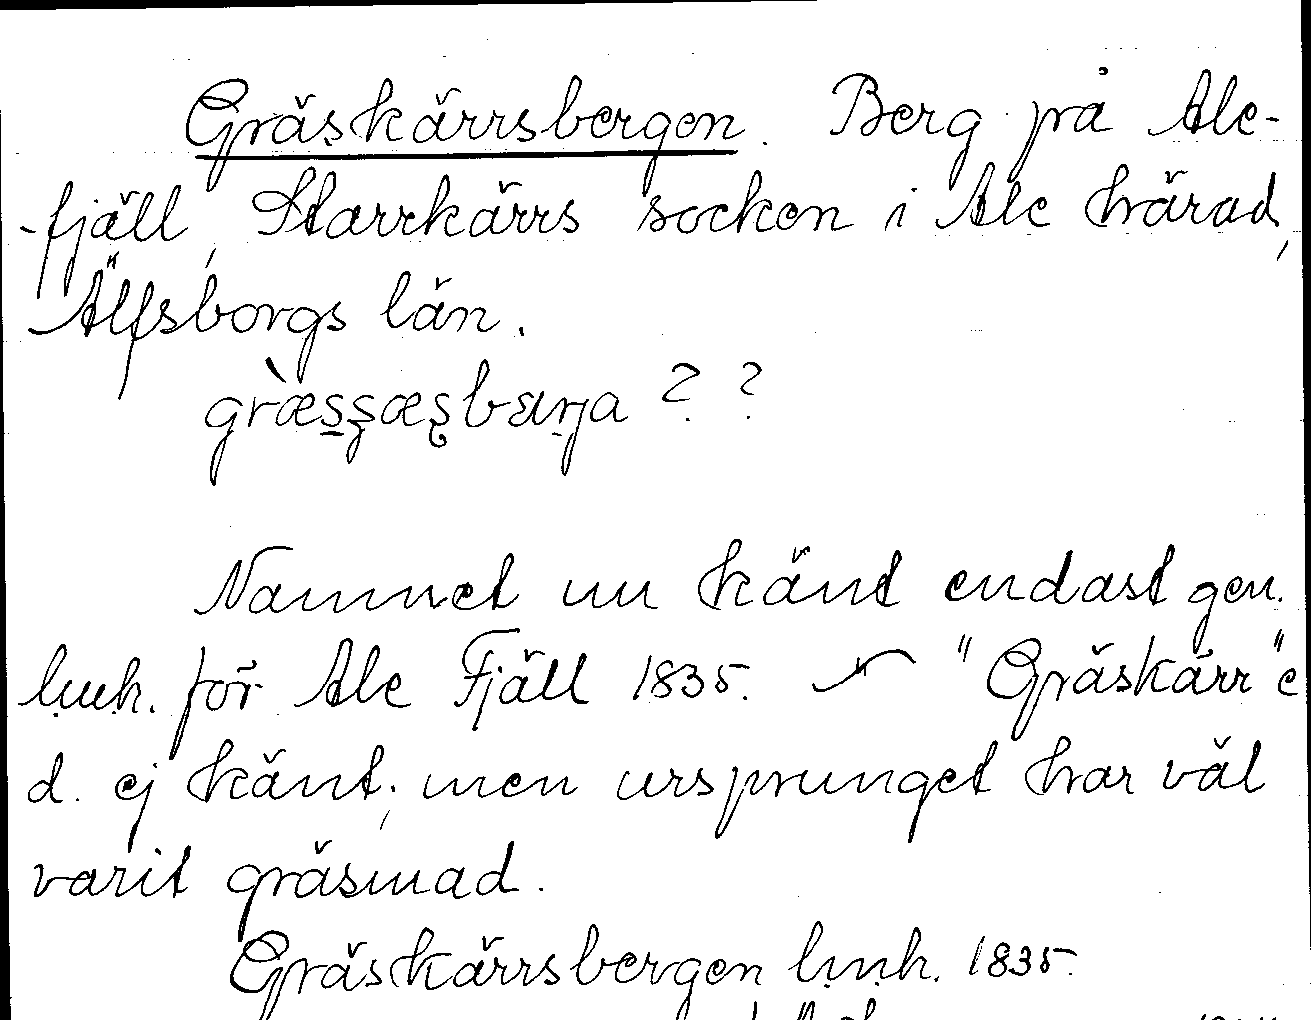 Gräskärrsbergen. Berg på Ale-
-fjäll, Starrkärrs socken i Ale härad,
Älfsborgs län.
græsşæşbærja ? ?
Namnet nu känt endast gen.
l.m.h. för Ale Fjäll 1835. "Gräskärr" e
d. ej känt; men ursprunget har väl
varit gräsmad.
Gräskärrsbergen l.m.h. 1835.